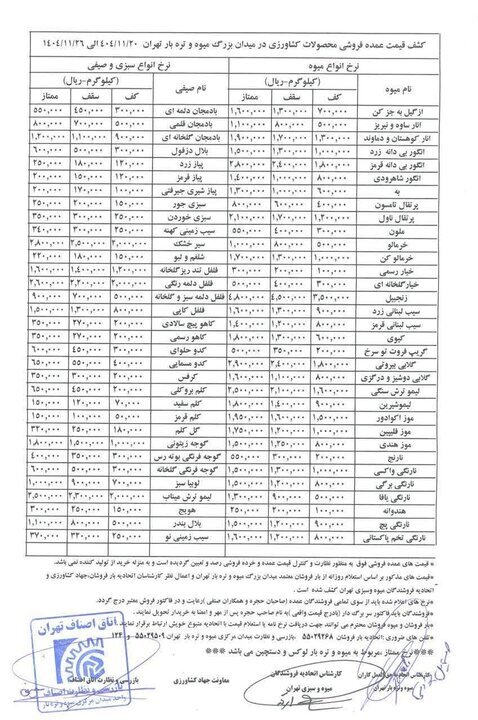 کشف قیمت عمده فروشی محصولات کشاورزی در میدان بزرگ میوه و تره بار تهران ۴۰۴/۱۱/۲۰ الی ۱۴۰۴/۱۱/۲۶
نرخ انواع میوه نرخ انواع سبزی و صیفی
نام میوه (کیلوگرم-ریال) نام صیفی (کیلوگرم-ریال)
کف سقف ممتاز کف سقف ممتاز
ازگیل به جز کن ۷۰۰,۰۰۰ ۱,۳۰۰,۰۰۰ ۱,۶۰۰,۰۰۰ بادمجان دلمه ای ۳۰۰,۰۰۰ ۴۵۰,۰۰۰ ۵۵۰,۰۰۰
انار ساوه و نیریز ۵۰۰,۰۰۰ ۸۰۰,۰۰۰ ۱,۱۰۰,۰۰۰ بادمجان قلمی ۵۰۰,۰۰۰ ۷۰۰,۰۰۰ ۸۰۰,۰۰۰
انار کوهستان و دماوند ۱,۳۰۰,۰۰۰ ۱,۷۰۰,۰۰۰ ۱,۹۰۰,۰۰۰ بادمجان گلخانه ای ۹۰۰,۰۰۰ ۱,۱۰۰,۰۰۰ ۱,۲۰۰,۰۰۰
انگور بی دانه زرد ۱,۰۰۰,۰۰۰ ۱,۳۰۰,۰۰۰ ۱,۵۰۰,۰۰۰ بلال دزفول ۳۰۰,۰۰۰ ۵۰۰,۰۰۰ ۶۰۰,۰۰۰
انگور بی دانه قرمز ۱,۸۰۰,۰۰۰ ۲,۴۰۰,۰۰۰ ۲,۸۰۰,۰۰۰ پیاز زرد ۱۲۰,۰۰۰ ۱۸۰,۰۰۰ ۲۵۰,۰۰۰
انگور شاهرودی ۸۰۰,۰۰۰ ۱,۰۰۰,۰۰۰ ۱,۴۰۰,۰۰۰ پیاز قرمز ۱۲۰,۰۰۰ ۱۵۰,۰۰۰ ۲۰۰,۰۰۰
به ۶۰۰,۰۰۰ ۱,۰۰۰,۰۰۰ ۱,۳۰۰,۰۰۰ پیاز شیری جیرفتی ۱۰۰,۰۰۰ ۱۷۰,۰۰۰ ۲۰۰,۰۰۰
پرتقال تامسون ۴۰۰,۰۰۰ ۶۰۰,۰۰۰ ۸۰۰,۰۰۰ سبزی جور ۱۵۰,۰۰۰ ۲۰۰,۰۰۰ ۲۵۰,۰۰۰
پرتقال ناول ۱,۲۰۰,۰۰۰ ۱,۷۰۰,۰۰۰ ۲,۱۰۰,۰۰۰ سبزی خوردن ۲۵۰,۰۰۰ ۳۰۰,۰۰۰ ۳۵۰,۰۰۰
ملون ۳۰۰,۰۰۰ ۴۰۰,۰۰۰ ۵۵۰,۰۰۰ سیب زمینی کهنه ۲۰۰,۰۰۰ ۳۰۰,۰۰۰ ۳۴۰,۰۰۰
خرمالو ۵۰۰,۰۰۰ ۸۰۰,۰۰۰ ۱,۰۰۰,۰۰۰ سیر خشک ۲,۰۰۰,۰۰۰ ۲,۵۰۰,۰۰۰ ۲,۸۰۰,۰۰۰
خرمالو کن ۱,۰۰۰,۰۰۰ ۱,۳۰۰,۰۰۰ ۱,۷۰۰,۰۰۰ شلغم و لبو ۱۵۰,۰۰۰ ۱۸۰,۰۰۰ ۲۲۰,۰۰۰
خیار رسمی ۱۰۰,۰۰۰ ۲۰۰,۰۰۰ ۳۰۰,۰۰۰ فلفل تند ریز گلخانه ۱,۲۰۰,۰۰۰ ۱,۴۰۰,۰۰۰ ۱,۶۰۰,۰۰۰
خیار گلخانه ای ۳۰۰,۰۰۰ ۴۰۰,۰۰۰ ۵۰۰,۰۰۰ فلفل دلمه رنگی ۲,۰۰۰,۰۰۰ ۲,۲۰۰,۰۰۰ ۲,۶۰۰,۰۰۰
زنجبیل ۳,۵۰۰,۰۰۰ ۴,۵۰۰,۰۰۰ ۴,۸۰۰,۰۰۰ فلفل دلمه سبز و گلخانه ۵۰۰,۰۰۰ ۷۰۰,۰۰۰ ۹۰۰,۰۰۰
سیب لبنانی زرد ۹۰۰,۰۰۰ ۱,۳۰۰,۰۰۰ ۱,۶۰۰,۰۰۰ فلفل کاپی ۸۰۰,۰۰۰ ۱,۳۰۰,۰۰۰ ۱,۵۰۰,۰۰۰
سیب لبنانی قرمز ۸۰۰,۰۰۰ ۱,۲۰۰,۰۰۰ ۱,۴۰۰,۰۰۰ کاهو پیچ سالادی ۲۰۰,۰۰۰ ۲۷۰,۰۰۰ ۳۵۰,۰۰۰
کیوی ۶۰۰,۰۰۰ ۱,۳۰۰,۰۰۰ ۱,۸۰۰,۰۰۰ کاهو رسمی ۲۰۰,۰۰۰ ۲۷۰,۰۰۰ ۳۵۰,۰۰۰
گریپ فروت تو سرخ ۲۰۰,۰۰۰ ۳۵۰,۰۰۰ ۵۰۰,۰۰۰ کدو حلوای ۳۰۰,۰۰۰ ۴۵۰,۰۰۰ ۶۰۰,۰۰۰
گلابی بیروتی ۱,۸۰۰,۰۰۰ ۲,۴۰۰,۰۰۰ ۲,۹۰۰,۰۰۰ کدو مسمایی ۴۰۰,۰۰۰ ۵۵۰,۰۰۰ ۶۵۰,۰۰۰
گلابی دوشیز و درگزی ۸۰۰,۰۰۰ ۱,۱۰۰,۰۰۰ ۱,۶۰۰,۰۰۰ کرفس ۲۰۰,۰۰۰ ۳۰۰,۰۰۰ ۳۵۰,۰۰۰
لیمو ترش سنگی ۱,۶۰۰,۰۰۰ ۲,۱۰۰,۰۰۰ ۲,۵۰۰,۰۰۰ کلم بروکلی ۲۰۰,۰۰۰ ۴۵۰,۰۰۰ ۶۵۰,۰۰۰
لیموشیرین ۹۰۰,۰۰۰ ۱,۴۰۰,۰۰۰ ۱,۸۰۰,۰۰۰ کلم سفید ۷۰,۰۰۰ ۱۲۰,۰۰۰ ۱۵۰,۰۰۰
موز اکوادور ۱,۵۰۰,۰۰۰ ۱,۶۵۰,۰۰۰ ۱,۹۵۰,۰۰۰ کلم قرمز ۵۰,۰۰۰ ۱۰۰,۰۰۰ ۱۵۰,۰۰۰
موز فلیپین ۱,۰۰۰,۰۰۰ ۱,۵۰۰,۰۰۰ ۱,۷۵۰,۰۰۰ گل کلم ۱۸۰,۰۰۰ ۲۵۰,۰۰۰ ۳۲۰,۰۰۰
موز هندی ۸۰۰,۰۰۰ ۱,۲۵۰,۰۰۰ ۱,۵۰۰,۰۰۰ گوجه زیتونی ۱,۰۰۰,۰۰۰ ۱,۵۰۰,۰۰۰ ۱,۸۰۰,۰۰۰
نارنج ۲۰۰,۰۰۰ ۳۰۰,۰۰۰ ۵۵۰,۰۰۰ گوجه فرنگی بوته رس ۳۰۰,۰۰۰ ۳۵۰,۰۰۰ ۴۰۰,۰۰۰
نارنگی واکسی ۱,۰۰۰,۰۰۰ ۱,۳۰۰,۰۰۰ ۱,۵۰۰,۰۰۰ گوجه فرنگی گلخانه ۳۰۰,۰۰۰ ۵۰۰,۰۰۰ ۶۰۰,۰۰۰
نارنگی برگی ۸۰۰,۰۰۰ ۱,۲۰۰,۰۰۰ ۱,۵۰۰,۰۰۰ لوبیا سبز ۷۰۰,۰۰۰ ۹۰۰,۰۰۰ ۱,۰۰۰,۰۰۰
نارنگی یافا ۵۰۰,۰۰۰ ۹۰۰,۰۰۰ ۱,۳۰۰,۰۰۰ لیمو ترش میناب ۲,۰۰۰,۰۰۰ ۲,۳۰۰,۰۰۰ ۲,۵۰۰,۰۰۰
هندوانه ۱۰۰,۰۰۰ ۲۰۰,۰۰۰ ۲۵۰,۰۰۰ هویج ۱۵۰,۰۰۰ ۲۵۰,۰۰۰ ۳۰۰,۰۰۰
نارنگی پیج ۹۰۰,۰۰۰ ۱,۳۰۰,۰۰۰ ۱,۵۰۰,۰۰۰ بلال بندر ۵۰۰,۰۰۰ ۸۰۰,۰۰۰ ۱,۱۰۰,۰۰۰
نارنگی تخم پاکستانی ۸۰۰,۰۰۰ ۱,۲۰۰,۰۰۰ ۱,۷۵۰,۰۰۰ سیب زمینی نو ۲۵۰,۰۰۰ ۳۲۰,۰۰۰ ۳۷۰,۰۰۰
*قیمت های عمده فروشی فوق به منظور نظارت و کنترل قیمت عمده و خرده فروشی رصد و تعیین گردیده است و به منزله خرید از تولید کننده نمی باشد.
*قیمت های مذکور بر اساس استعلام روزانه از بار فروشان معتمد میدان بزرگ میوه و تره بار تهران و اعمال نظر کارشناسان اتحادیه بار فروشان، جهاد کشاورزی و
اتحادیه فروشندگان میوه وسبزی تهران کشف شده است .
*نرخ های اعلام شده باید از سوی تمامی فروشندگان عمده (صاحبان حجره و همکاران صنفی) رعایت و در فاکتور فروش معتبر درج گردد.
*فروشندگان باید فاکتور سر برگ دار (بادرج قیمت واقعی) به نام صاحب حجره پس از مهر و امضا به خریدار تحویل نمایند.
*بار فروشان و میوه فروشان محترم می توانند، جهت دریافت نرخ نامه یا استعلام قیمت با اتحادیه متبوع خویش ارتباط برقرار نمایند.
*تلفن های ضروری :اتحادیه بار فروشان ۵۵۰۲۹۲۶۸- بازرسی و نظارت میدان مرکزی میوه و تره بار تهران ۵۵۰۲۹۵۰۹ و ۱۲۴
***نرخ ممتاز ،مربوط به میوه و تره بار لوکس و دستچین می باشد***
کارشناس اتحادیه فروشندگان
میوه و سبزی تهران
معاونت جهاد کشاورزی
بازرسی و نظارت اتاق اصناف
میوه و تره بار تهران
اتاق اصناف تهران
بازرسی و نظارت اصناف
واحد میدان مرکزی میوه و تره بار